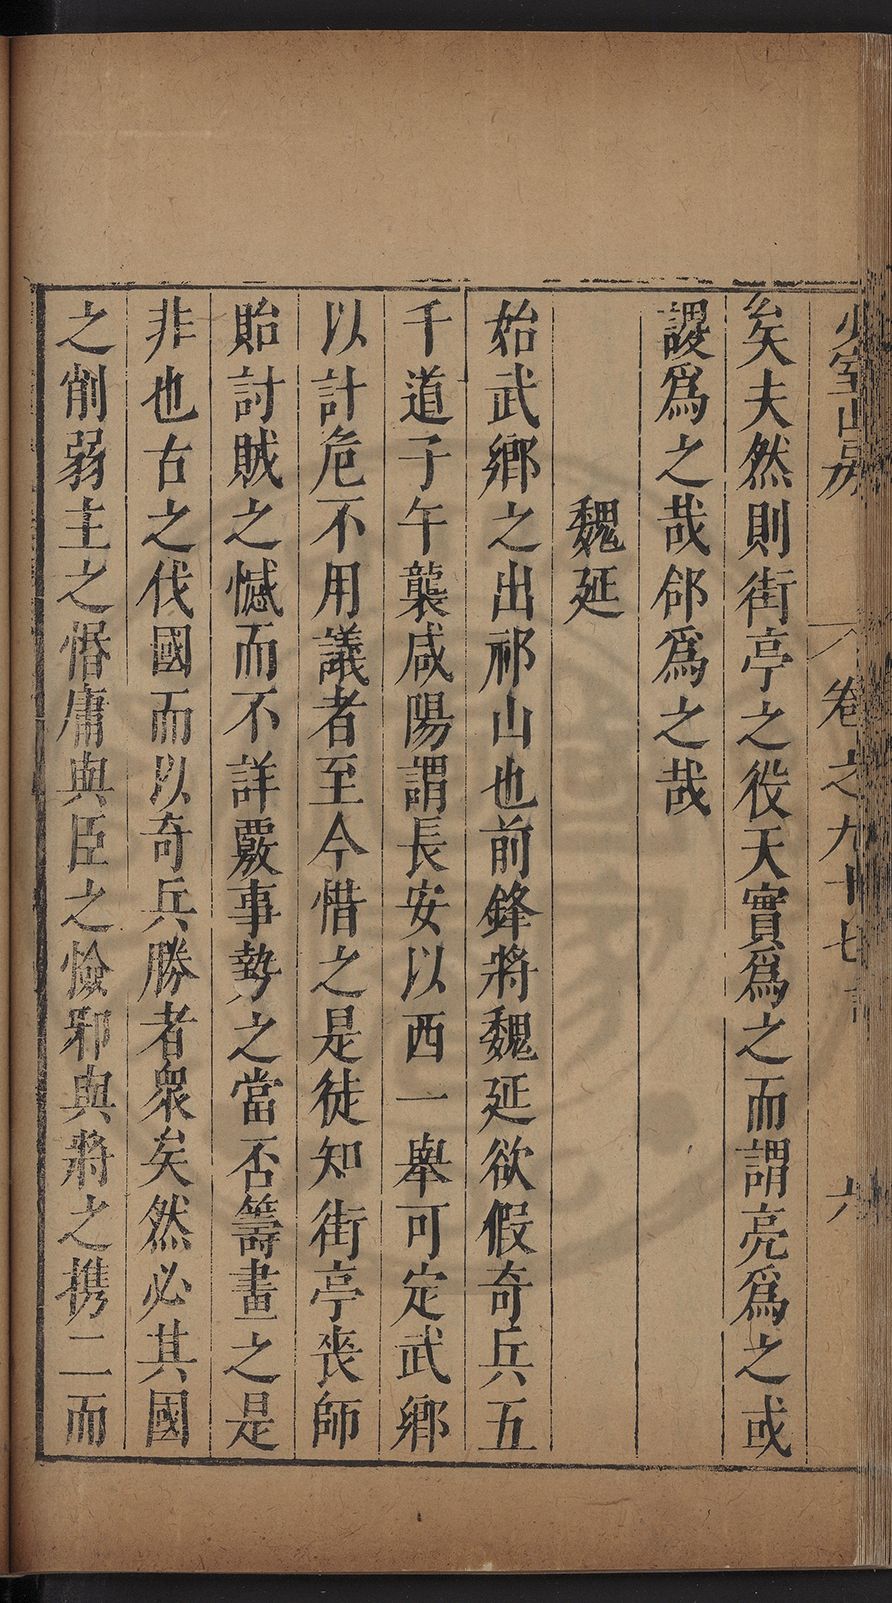 少室山房 卷之九十七 六
矣夫然則街亭之役天實爲之而謂亮爲之或
謖爲之哉郃爲之哉
魏延
始武鄉之出祁山也前鋒將魏延欲假奇兵五
千道子午襲咸陽謂長安以西一舉可定武鄉
以計危不用議者至今惜之是徒知街亭喪師
貽討賊之憾而不詳覈事勢之當否籌畫之是
非也古之伐國而以奇兵勝者衆矣然必其國
之削弱主之惽庸與臣之憸邪與將之携二而